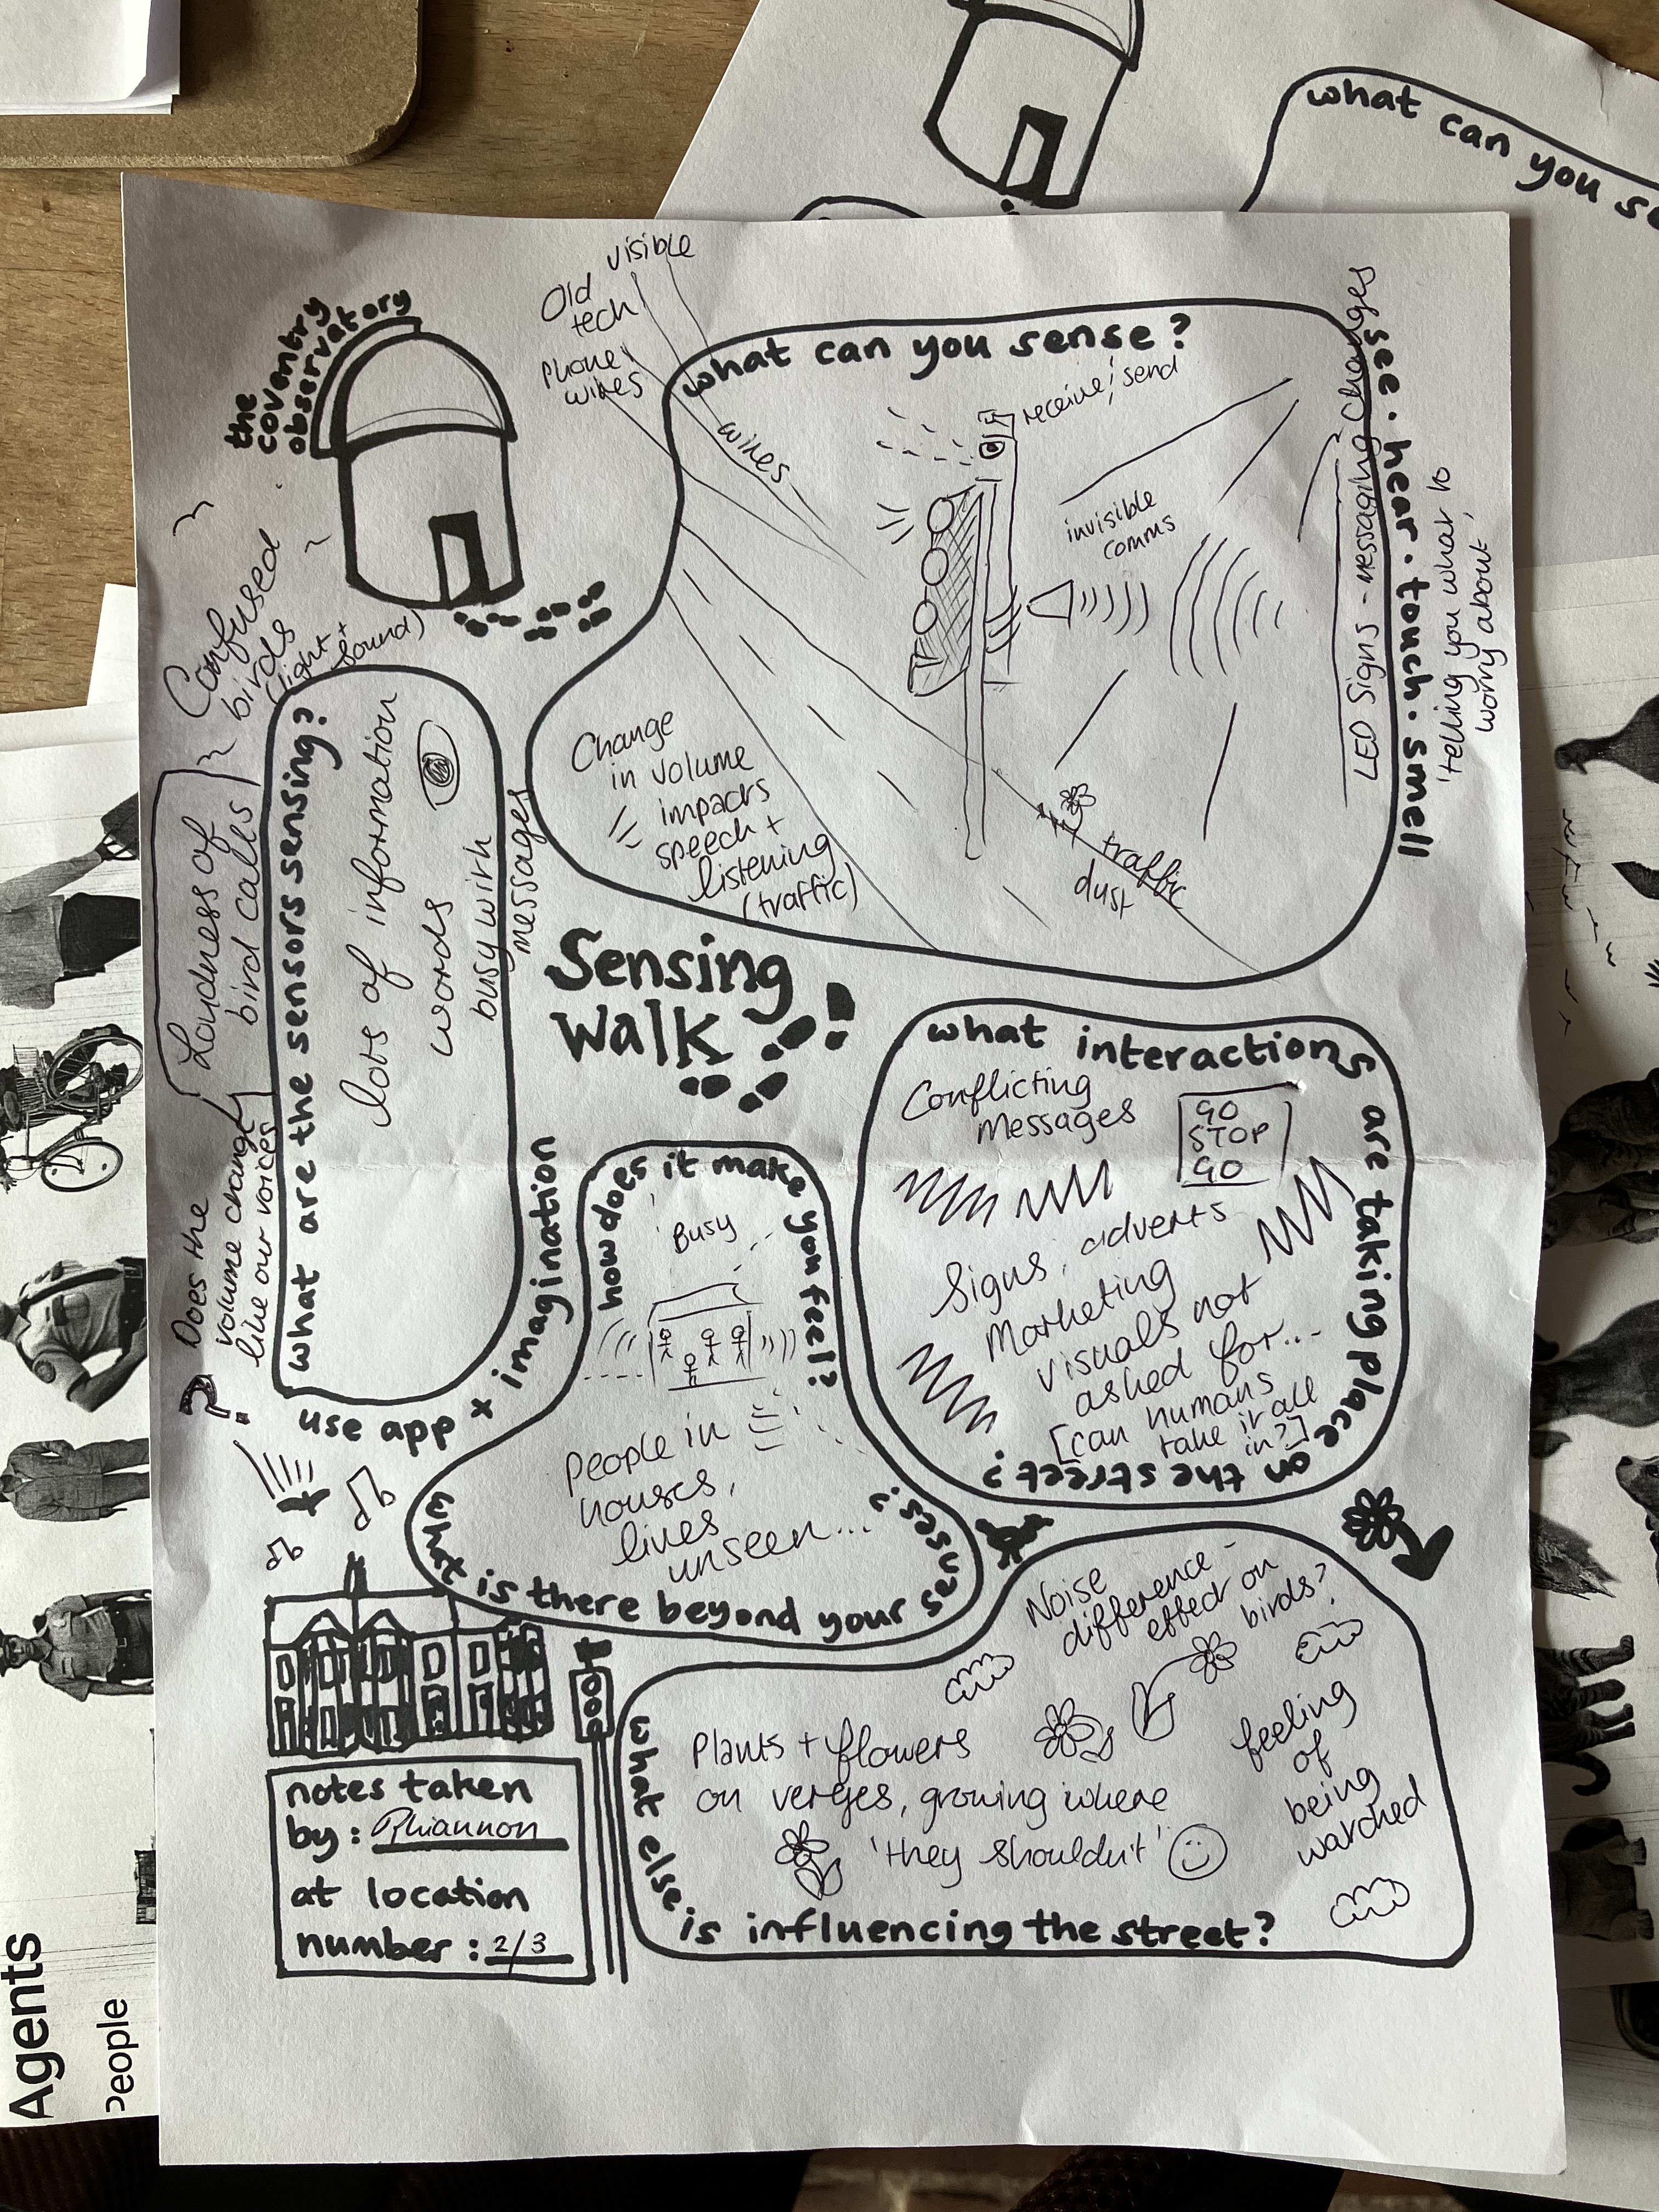 what can you se
the
coventry
observatory
visible
Old
tech
Phone
wires
wires
what can you sense?
see. hear. touch. smell
receive, send
invisible
comms
LED Signs - messaging changes
'telling you what to
worry about'
Change
in volume
impacts
speech +
listening
(traffic)
traffic
dust
Confused
birds
(light +
sound)
Loudness of
bird calls
Does the
volume change
like our voices
?
what are the sensors sensing?
lots of information
words
busy with
messages
use app + imagination
Sensing
Walk
what interactions are taking place on the street?
Conflicting
messages
GO
STOP
GO
Signs, adverts
Marketing
visuals not
asked for...
[can humans
take it all
in?]
how does it make you feel?
'Busy
People in
houses,
lives
unseen...
what is there beyond your senses?
Noise
difference -
effect on
birds?
Plants + flowers
on verges, growing where
'they shouldn't'
feeling
of
being
watched
what else is influencing the street?
notes taken
by: Rhiannon
at location
number: 2/3
Agents
People